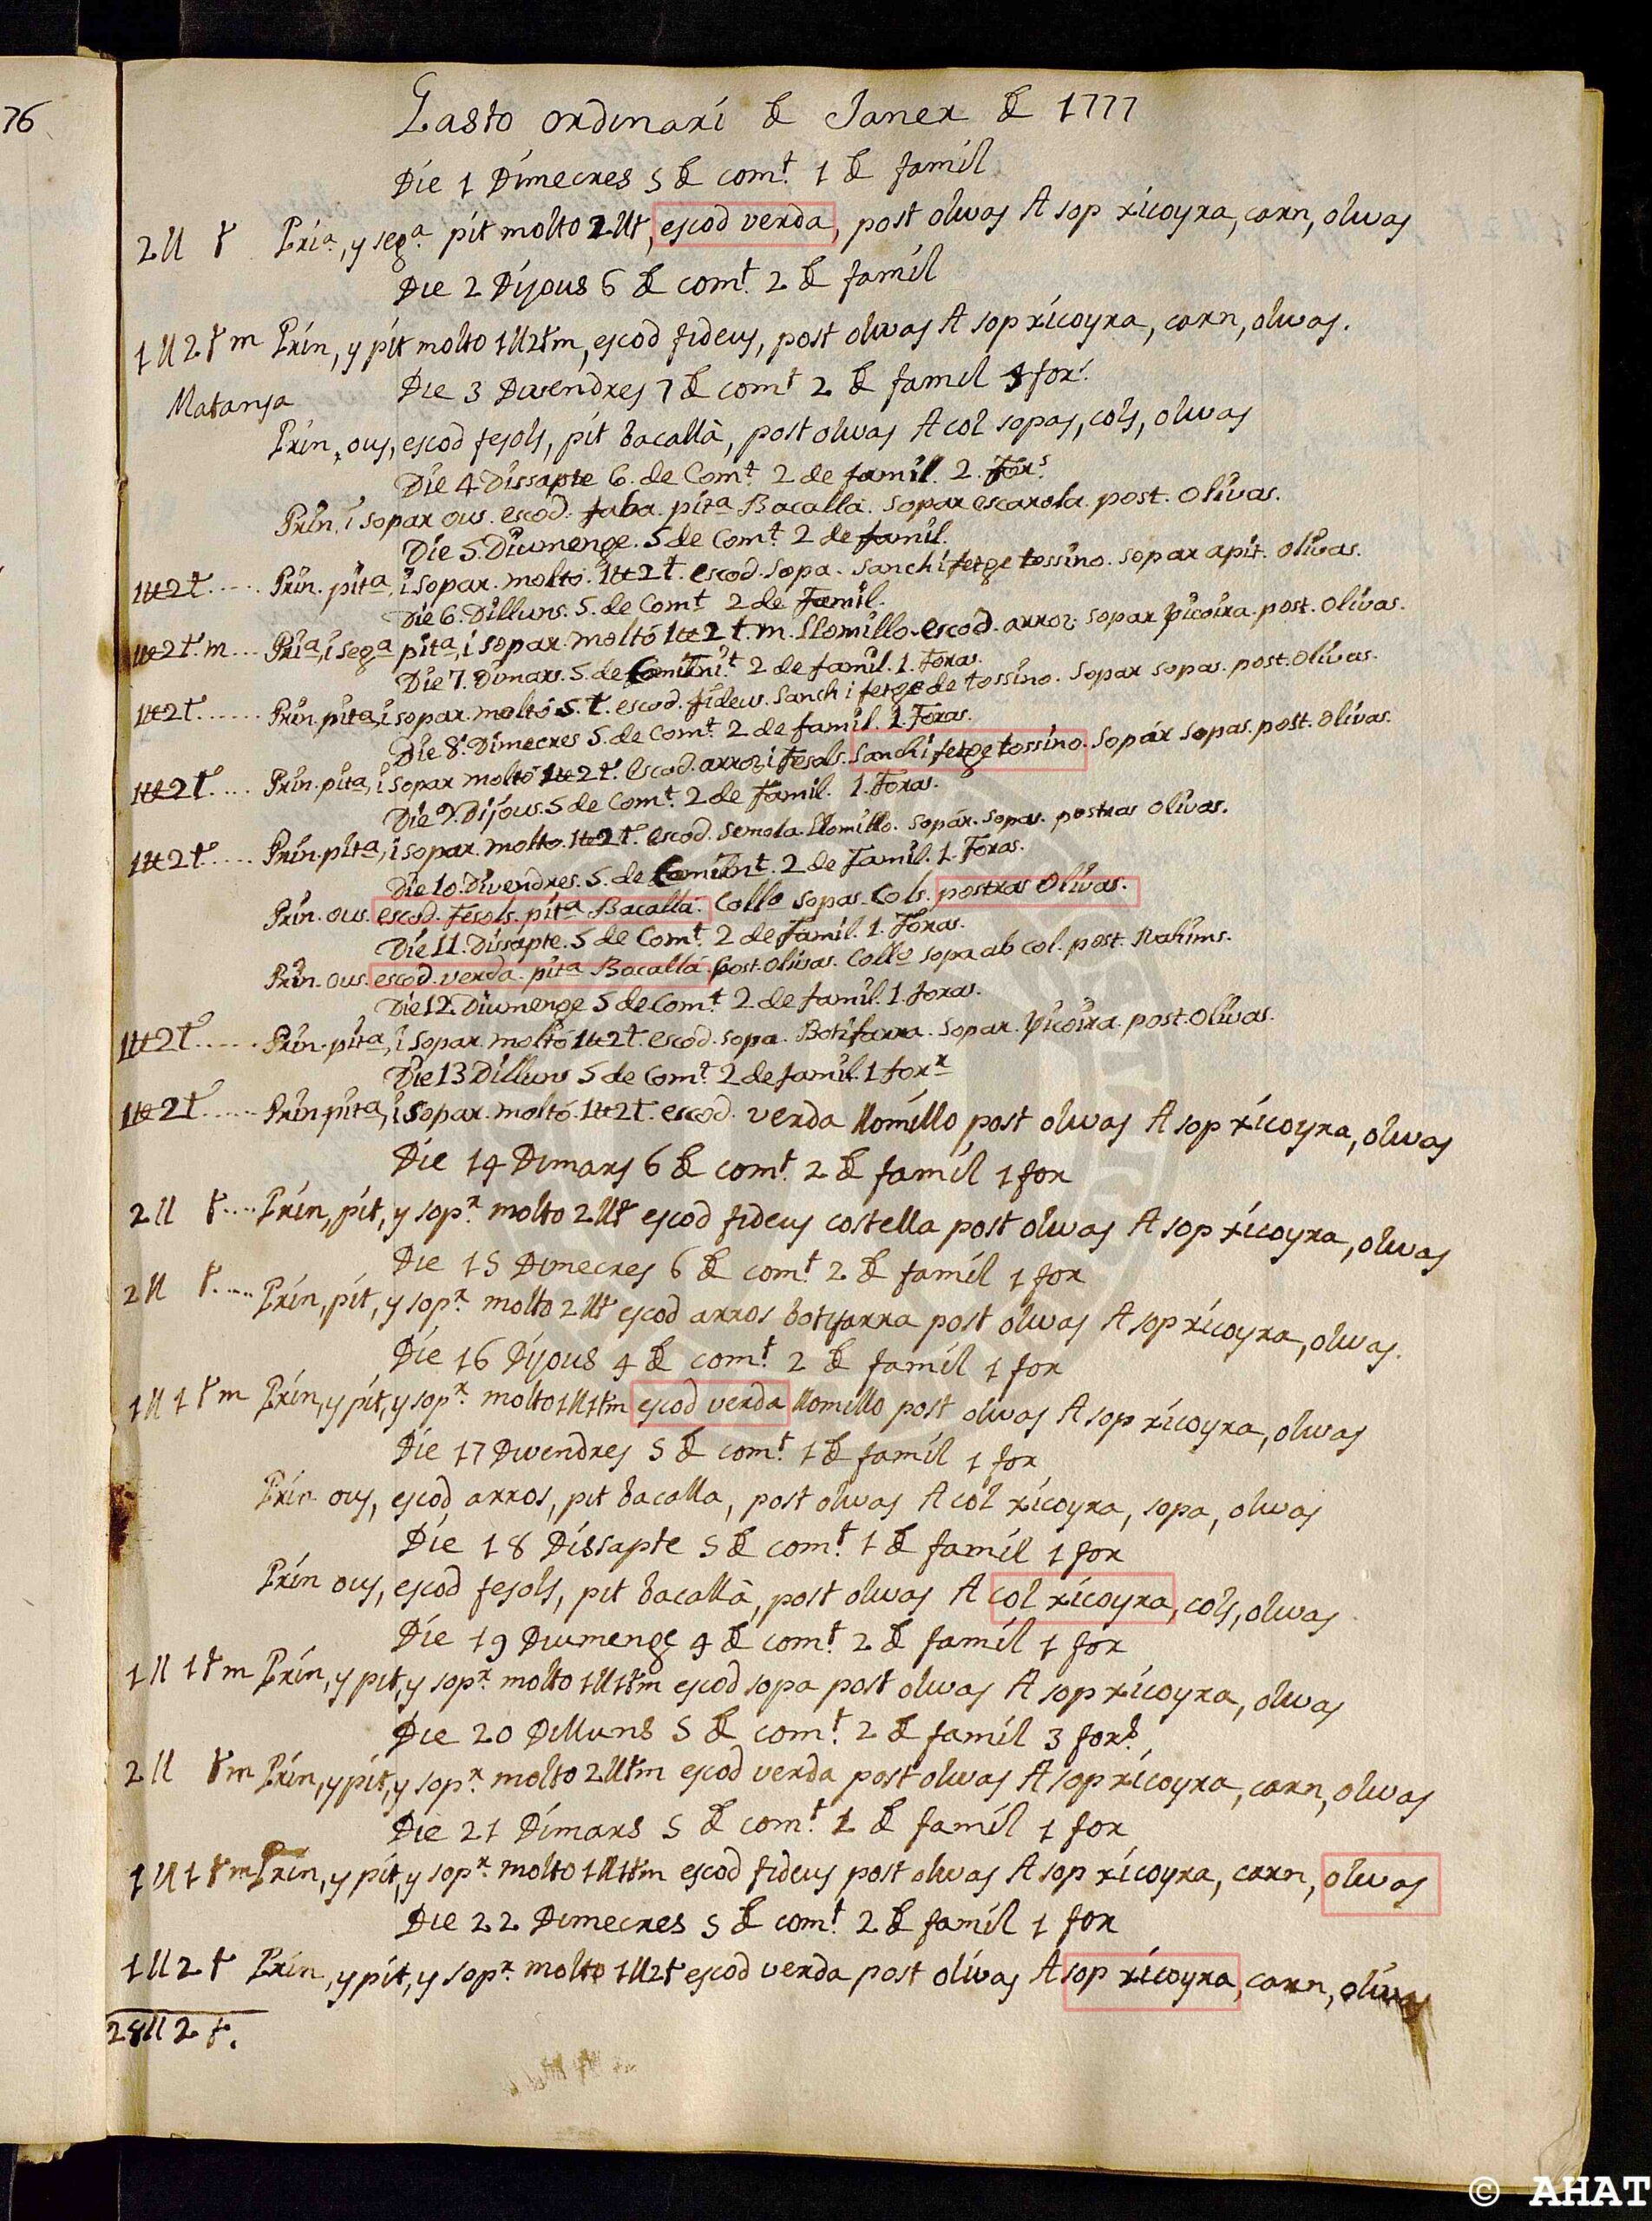 76
Gasto ordinari de Janer de 1777
Die 1 Dimecres 5 de comt. 1 de famil
2 ll t Pria, y sega. pit molto 2 ll t, escod verda, post olivas A sop xicoyra, carn, olivas
Die 2 Dijous 6 de comt. 2 de famil
1 ll 2 t m Prin, y pit molto 1 ll 2 t m, escod fideus, post olivas A sop xicoyra, carn, olivas.
Die 3 Divendres 7 de comt 2 de famil for.
Matansa
Prin, ous, escod fesols, pit bacallà, post olivas A col sopas, cols, olivas
Die 4 Dissapte 6. de Comt. 2 de famil. 2. Fors.
Prin. i sopar ous. escod. faba. pita Bacallà. Sopar escarola. post. Olivas.
Die 5. Diumenge. 5 de Comt. 2 de famil.
1 tt 2 t..... Prin. pita, i sopar. molto. 1 tt 2 t. escod. sopa. Sanch i fetge tossino. sopar apit. olivas.
Die 6. Dilluns. 5. de Comt 2 de Famil.
1 tt 2 t. m... Pria, i sega pita, i sopar. moltó 1 tt 2 t. m. Llomillo. escod. arros. sopar xicoira. post. olivas.
Die 7. Dimars. 5. de Comt 2 de famil. 1. Foras.
1 tt 2 t...... Prin. pita, i sopar. moltó 5. t. escod. fideus. Sanch i fetge de tossino. Sopar sopas. post. Olivas.
Die 8. Dimecres 5. de Comt. 2 de famil. 1. Foras.
1 tt 2 t.... Prin. pita, i sopar moltó 1 tt 2 t. escod. arros i fesols. Sanch i fetge tossino. Sopár sopas. post. olivas.
Die 9. Dijous. 5 de Comt. 2 de Famil. 1. Foras.
1 tt 2 t..... Prin. pita, i sopar. molto. 1 tt 2 t. escod. Semola Llomillo. Sopár. Sopas. postras olivas.
Die 10. Divendres. 5. de Comt. 2 de Famil. 1. Foras.
Prin. ous. escod. Fesols. pita Bacallá. Collo sopas. Cols. postras Olivas.
Die 11. Dissapte. 5 de Comt. 2 de Famil. 1. Foras.
Prin. ous. escod. verda. pita Bacallá. post. olivas. Collo sopa ab col. post. Rahims.
Die 12. Diumenge 5 de Comt. 2 de famil. 1. foras.
1 tt 2 t..... Prin. pita, i sopar. moltó 1 tt 2 t. escod. sopa. Botifarra. Sopar. xicoira. post. Olivas.
Die 13 Dilluns 5 de Comt. 2 de famil. 1 forr
1 tt 2 t..... Prin. pita, i sopar. moltó. 1 tt 2 t. escod. verda llomillo, post olivas A sop xicoyra, olivas
Die 14 Dimars 6 de comt. 2 de famil 1 for
2 ll t.... Prin, pit, y sopr. molto 2 ll t escod fideus costella post olivas A sop xicoyra, olivas
Die 15 Dimecres 6 de comt. 2 de famil 1 for
2 ll t.... Prin, pit, y sopr. molto 2 ll t escod arros botifarra post olivas A sop xicoyra, olivas.
Die 16 Dijous 4 de comt. 2 de famil 1 for
1 ll 1 t m Prin, y pit, y sopr. molto 1 ll 1 t m escod verda llomillo post olivas A sop xicoyra, olivas
Die 17 Divendres 5 de comt. 1 de famil 1 for
Prin ous, escod arros, pit bacalla, post olivas A col xicoyra, sopa, olivas
Die 18 Dissapte 5 de comt. 1 de famil 1 for
Prin ous, escod fesols, pit bacallà, post olivas A col xicoyra, cols, olivas
Die 19 Diumenge 4 de comt. 2 de famil 1 for
1 ll 1 t m Prin, y pit, y sopr. molto 1 ll 1 t m escod sopa post olivas A sop xicoyra, olivas
Die 20 Dilluns 5 de comt. 2 de famil 3 fors.
2 ll t m Prin, y pit, y sopr. molto 2 ll t m escod verda post olivas A sop xicoyra, carn, olivas
Die 21 Dimars 5 de comt. 1 de famil 1 for
1 ll 1 t m Prin, y pit, y sopr. molto 1 ll 1 t m escod fideus post olivas A sop xicoyra, carn, olivas
Die 22 Dimecres 5 de comt. 2 de famil 1 for
1 ll 2 t Prin, y pit, y sopr. molto 1 ll 2 t escod verda post olivas A sop xicoyra, carn, olivas
28 ll 2 t.
© AHAT